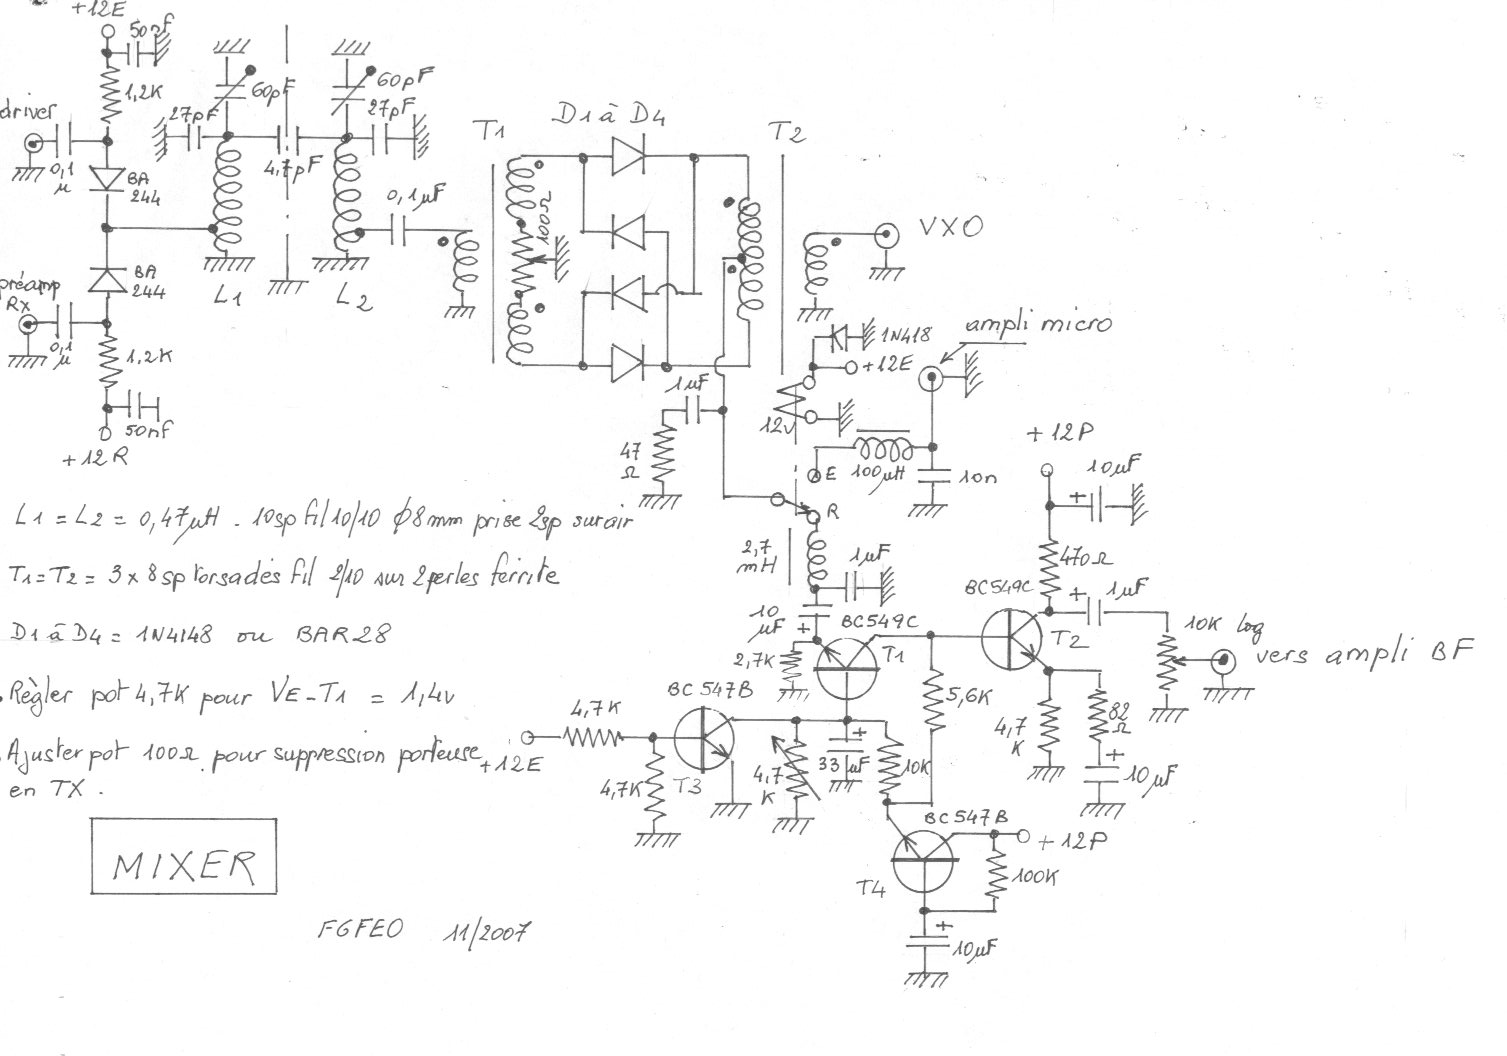 +12E
50nF
1,2K
driver
0,1
µ
BA
244
27pF
60pF
4,7pF
60pF
27pF
0,1µF
préamp
Rx
0,1
µ
BA
244
1,2K
50nF
+12R
L1
L2
T1
100Ω
D1 à D4
T2
VXO
1N418
+12E
12v
ampli micro
1µF
47
Ω
E
R
100µH
10n
2,7
mH
1µF
10
µF
+
2,7K
BC549C
T1
+12P
10µF
+
470Ω
BC549C
T2
+
1µF
10K log
vers ampli BF
5,6K
4,7
K
82
Ω
+
10µF
L1 = L2 = 0,47µH . 10sp fil 10/10 ϕ8mm prise 2sp sur air
T1=T2= 3x8sp torsadés fil 2/10 sur 2 perles ferrite
D1 à D4 = 1N4148 ou BAR28
. Règler pot 4,7K pour VE-T1 = 1,4v
. Ajuster pot 100Ω pour suppression porteuse
en TX .
+12E
4,7K
4,7K
BC547B
T3
4,7
K
+
33µF
10K
BC547B
T4
+12P
100K
+
10µF
MIXER
F6FEO 11/2007